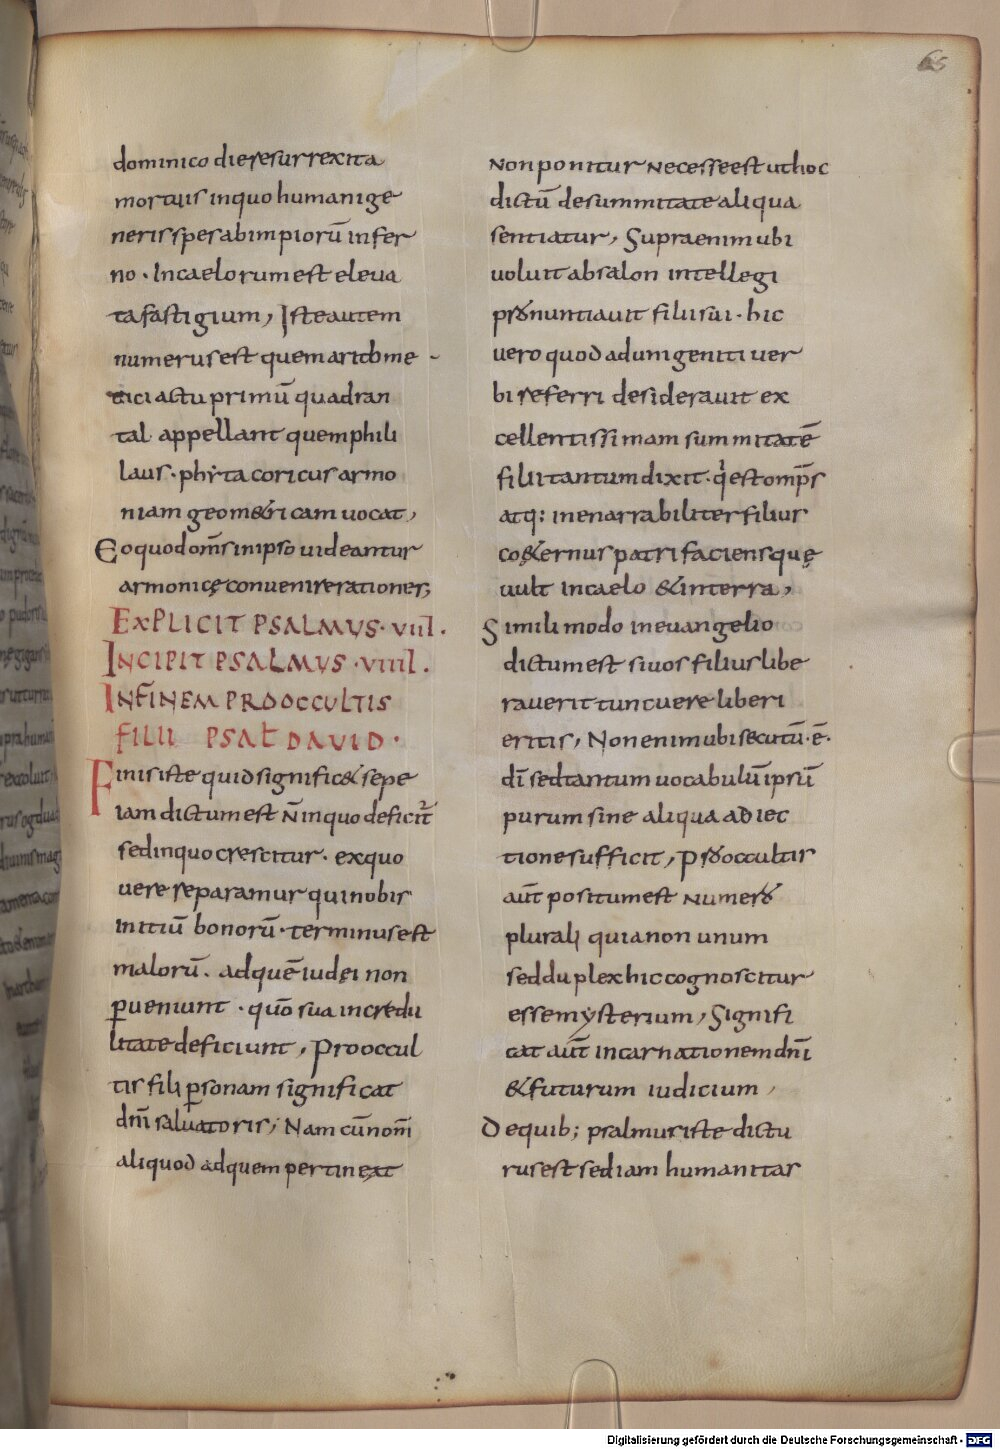 65
dominico die resurrexit a
mortuis inquo humani ge
neris spes abimpiorū infer
no · Incaelorum est eleva
ta fastigium, Iste autem
numerus est quem arithme
tici actu primū quadran
tal appellant quem phili
laus · phẏtacoricus armo
niam geom&ricam uocat,
Eo quod om̄s inipso uideantur
armonicę conuenire rationes;
EXPLICIT PSALMUS · VIII.
INCIPIT PSALMUS · VIIII.
IN FINEM PRO OCCULTIS
FILII PSAL̄ DAVID ·
Finis iste quid signific& sepe
iam dictum est N̄ inquo deficit̄
sed inquo crescitur · exquo
uere separamur qui nobis
initiū bonorū · terminus est
malorū · ad quē iudęi non
p̱ueniunt · quō sua incredu
litate deficiunt, Pro occul
tis filii p̱sonam significat
dn̄i saluatoris; Nam cū nom̄
aliquod adquem pertineat
Non ponitur Necesse est ut hoc
dictū desummitate aliqua
sentiatur, Supra enim ubi
uoluit absalon intellegi
pronuntiauit filii sui · hic
uero quod ad unigeniti uer
bi referri desiderauit ex
cellentissimam summitatē
filii tantum dixit · q̇ est omp̄s
atq: inenarrabiliter filius
co&ernus patri faciens quę
uult incaelo &interra,
Simili modo ineuangelio
dictum est si uos filius libe
rauerit tunc uere liberi
eritis, Non enim ubi secutū · ē ·
dī sed tantum uocabulū ipsū
purum sine aliqua adiec
tione sufficit, Pro occultis
aūt positum est Numero
plurali quia non unum
sed duplex hic cognoscitur
esse mẏsterium, Signifi
cat aūt incarnationem dn̄i
&futurum iudicium,
De quib; psalmus iste dictu
rus est sed iam humanitas
Digitalisierung gefördert durch die Deutsche Forschungsgemeinschaft - DFG